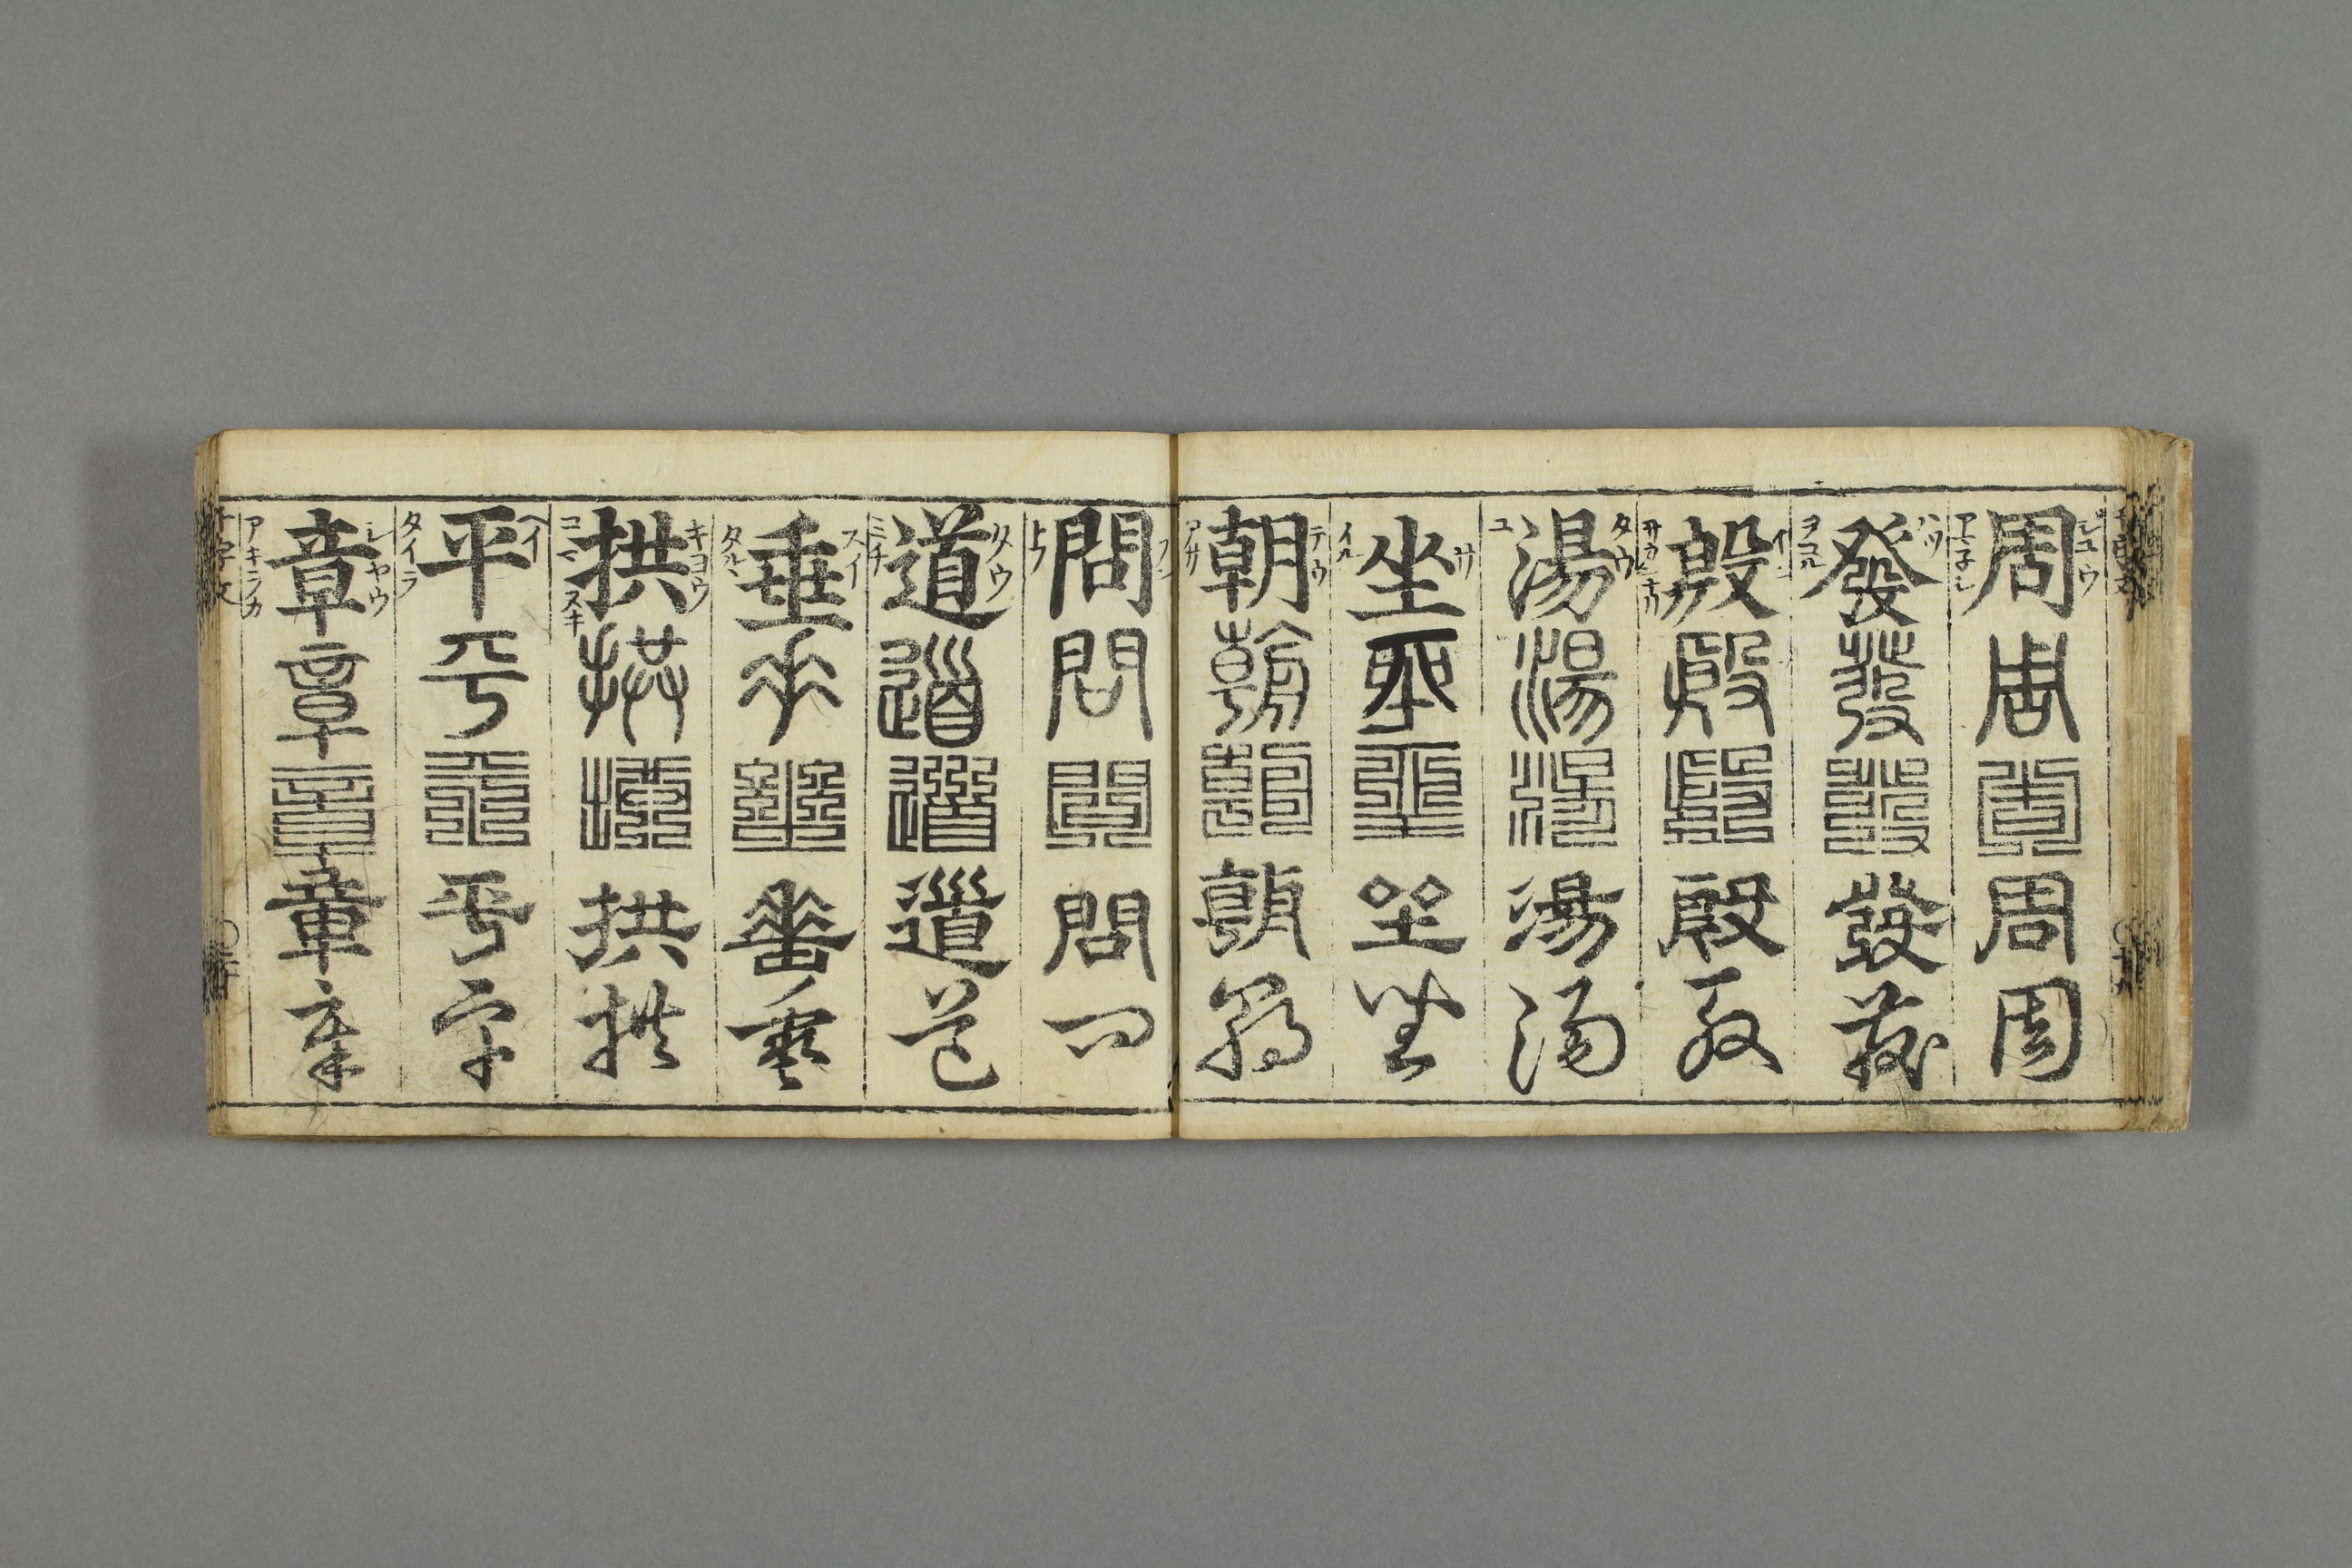 シユウ
周周周周周
アマネシ
ハツ
發發發發發
ヲコル
イン
殷殷殷殷殷
サカンナリ
タウ
湯湯湯湯湯
ユ
サ
坐坐坐坐坐
イル
テウ
朝朝朝朝朝
アサ
問問問問問
トフ
タウ
道道道道道
ミチ
スイ
垂垂垂垂垂
タルヽ
キヨウ
拱拱拱拱拱
コマヌキ
ヘイ
平平平平平
タイラ
シヤウ
章章章章章
アキラカ
千字文